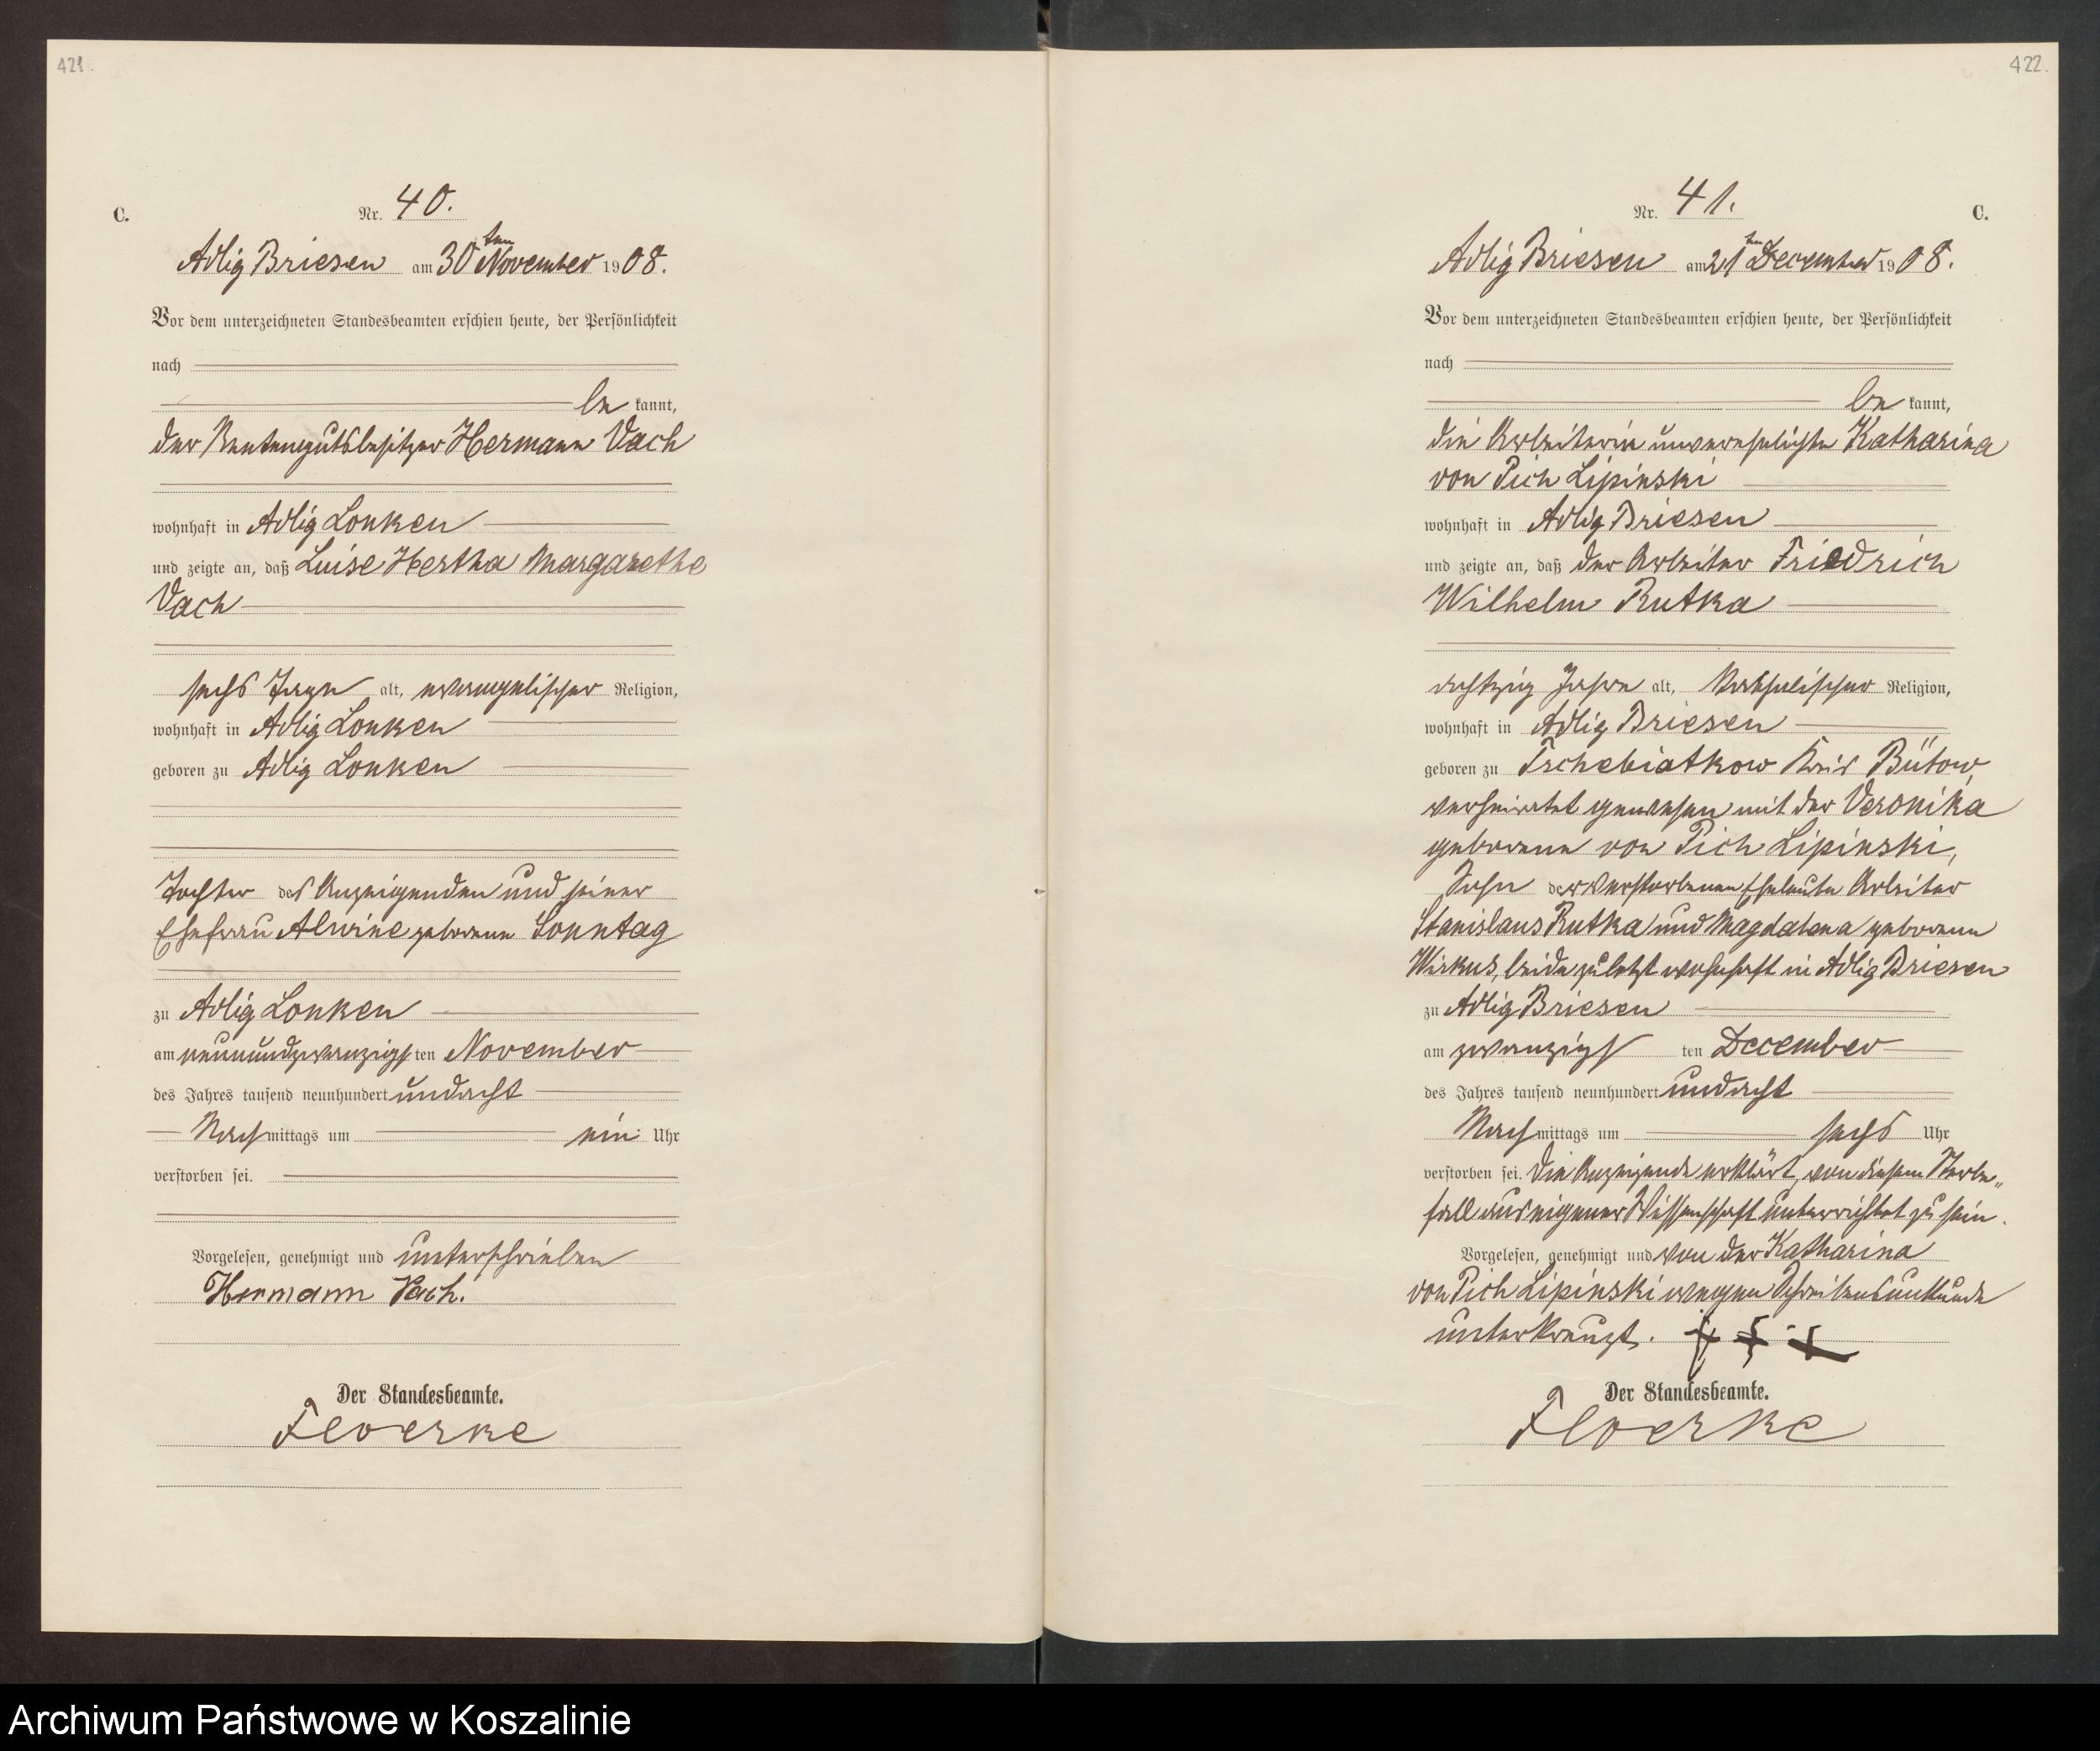 421.
C.
Nr. 40.
Adlig Briesen am 30ten November 1908.
Vor dem unterzeichneten Standesbeamten erschien heute, der Persönlichkeit
nach
be kannt,
der Rentengutsbesitzer Hermann Vach
wohnhaft in Adlig Lonken
und zeigte an, daß Luise Hertha Margarethe
Vach
sechs Tage alt, evangelischer Religion,
wohnhaft in Adlig Lonken
geboren zu Adlig Lonken
Tochter des Anzeigenden und seiner
Ehefrau Alwine geborene Sonntag
zu Adlig Lonken
am neunundzwanzigsten November
des Jahres tausend neunhundert undacht
Nachmittags um ein Uhr
verstorben sei.
Vorgelesen, genehmigt und unterschrieben
Hermann Vach.
Der Standesbeamte.
Floerke
422.
Nr. 41.
C.
Adlig Briesen am 21ten December 1908.
Vor dem unterzeichneten Standesbeamten erschien heute, der Persönlichkeit
nach
be kannt,
die Arbeiterin unverehelichte Katharina
von Pich Lipinski
wohnhaft in Adlig Briesen
und zeigte an, daß der Arbeiter Friedrich
Wilhelm Rutka
achtzig Jahre alt, katholischer Religion,
wohnhaft in Adlig Briesen
geboren zu Tschebiatkow Kreis Bütow,
verheiratet gewesen mit der Veronika
geborene von Pich Lipinski,
Sohn der verstorbenen Eheleute Arbeiter
Stanislaus Rutka und Magdalena geborene
Wirkus, beide zuletzt wohnhaft in Adlig Briesen
zu Adlig Briesen
am zwanzigsten December
des Jahres tausend neunhundert undacht
Nachmittags um sechs Uhr
verstorben sei. Die Anzeigende erklärt, von diesem Sterbe„
fall aus eigener Wissenschaft unterrichtet zu sein.
Vorgelesen, genehmigt und von der Katharina
von Pich Lipinski wegen Schreibensunkunde
unterkreuzt. + + +
Der Standesbeamte.
Floerke
Archiwum Państwowe w Koszalinie